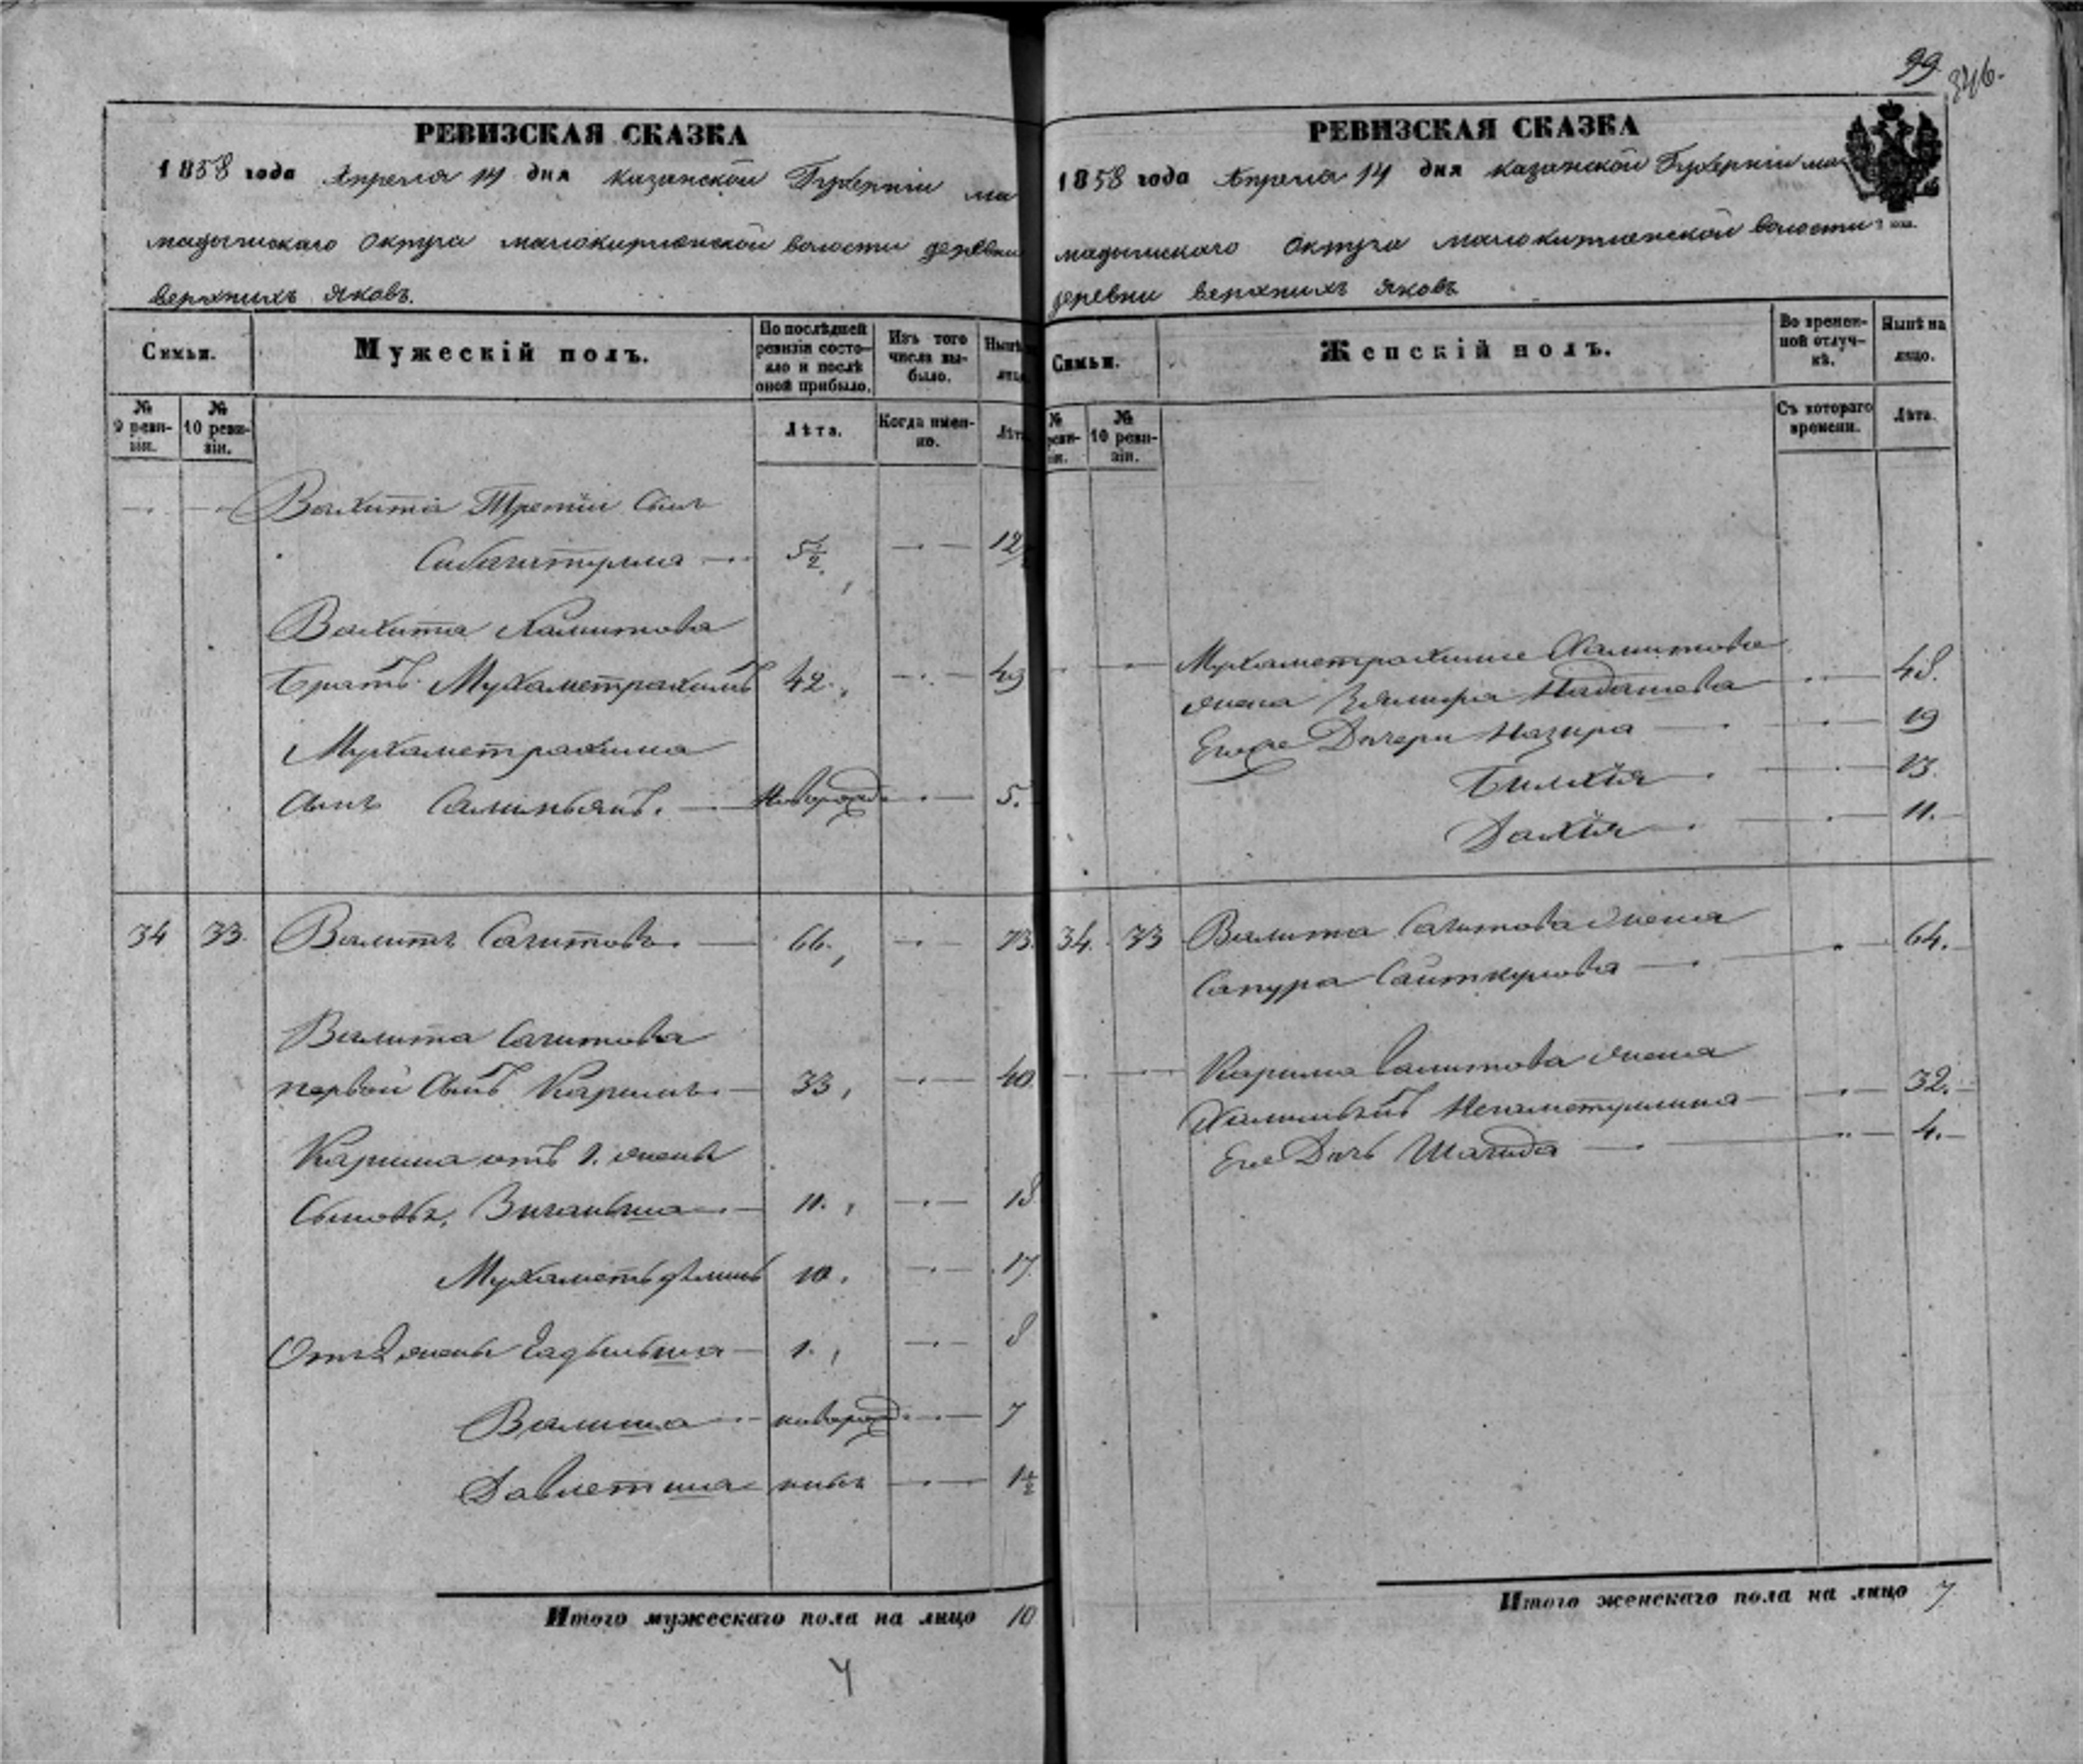 99
346.
РЕВИЗСКАЯ СКАЗКА
1858 года Апреля 14 дня казанской Губерніи ма
мадышскаго Округа малокирменской волости деревни
верхнихъ яковъ.
Семьи.
Мужескій полъ.
По послѣдней ревизіи состояло и послѣ оной прибыло.
Изъ того числа выбыло.
Нынѣ
лицо
№ 9 ревизіи.
№ 10 ревизіи.
Лѣта.
Когда именно.
Лѣта
Вахита Третій сынъ
Сибагатулла 5½ 12
Вахита Хамитова
братъ Мухаметрахимъ 42 49
Мухаметрахима
сынъ Салимьянъ. Новорожд 5.
34 33. Валитъ Сагитовъ. 66. 73.
Валита Сагитова
первой сынъ Каримъ 33 40
Карима отъ 1. жены
Сыновья, Зиганьша 11. 18
10. 17.
От 2 жены 1. 8
Валиша новорожд 7
Давлетша 1½
Итого мужескаго пола на лицо 10
4
РЕВИЗСКАЯ СКАЗКА
1858 года Апреля 14 дня казанской Губерніи ма
мадышскаго Округа малокирменской волости
деревни верхнихъ яковъ
Семьи.
Женскій полъ.
Во временной отлучкѣ.
Нынѣ на лицо.
№ ревизіи.
№ 10 ревизіи.
Съ котораго времени.
Лѣта.
Мухаметрахима Хамитова
жена 48.
Его же Дочери Назира 19
13.
Дахія 11.
34. 33 Валита Сагитова жена
Сапура Саиткулова 64.
Карима Валитова жена
32.
Его Дочь Шагида 4.
Итого женскаго пола на лицо 7